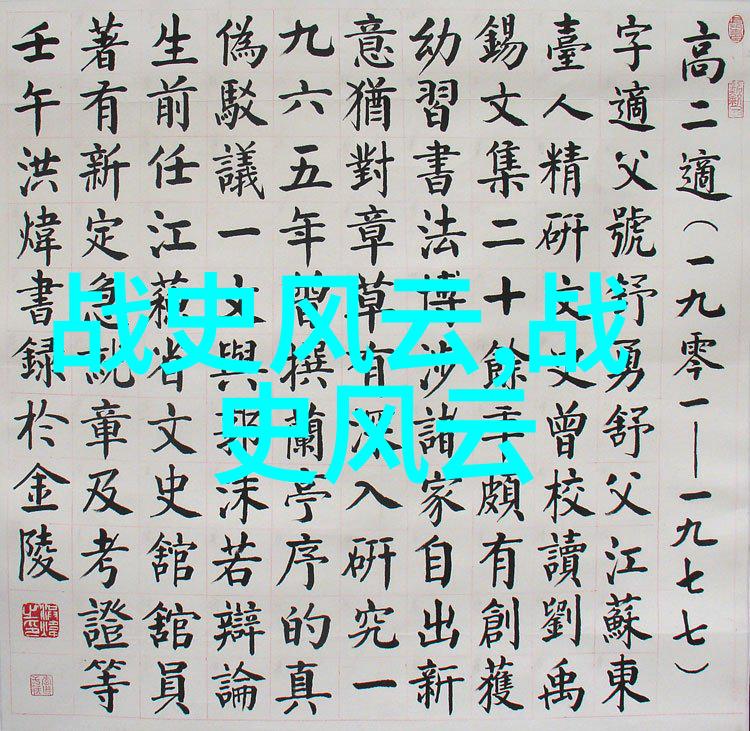 高二適（一九零一——一九七七）
字適父號舒勇舒父江蘇東
臺人精研文史曾校讀劉禹
錫文集二十餘年頗有創獲
幼習書法博涉諸家自出新
意猶對章草有深入研究一
九六五年曾撰蘭亭序的真
偽駁議一文與郭沫若辯論
生前任江蘇省文史舘舘員
著有新定急就章及考證等
壬午洪煒書録於金陵
战史风云,战
史风云